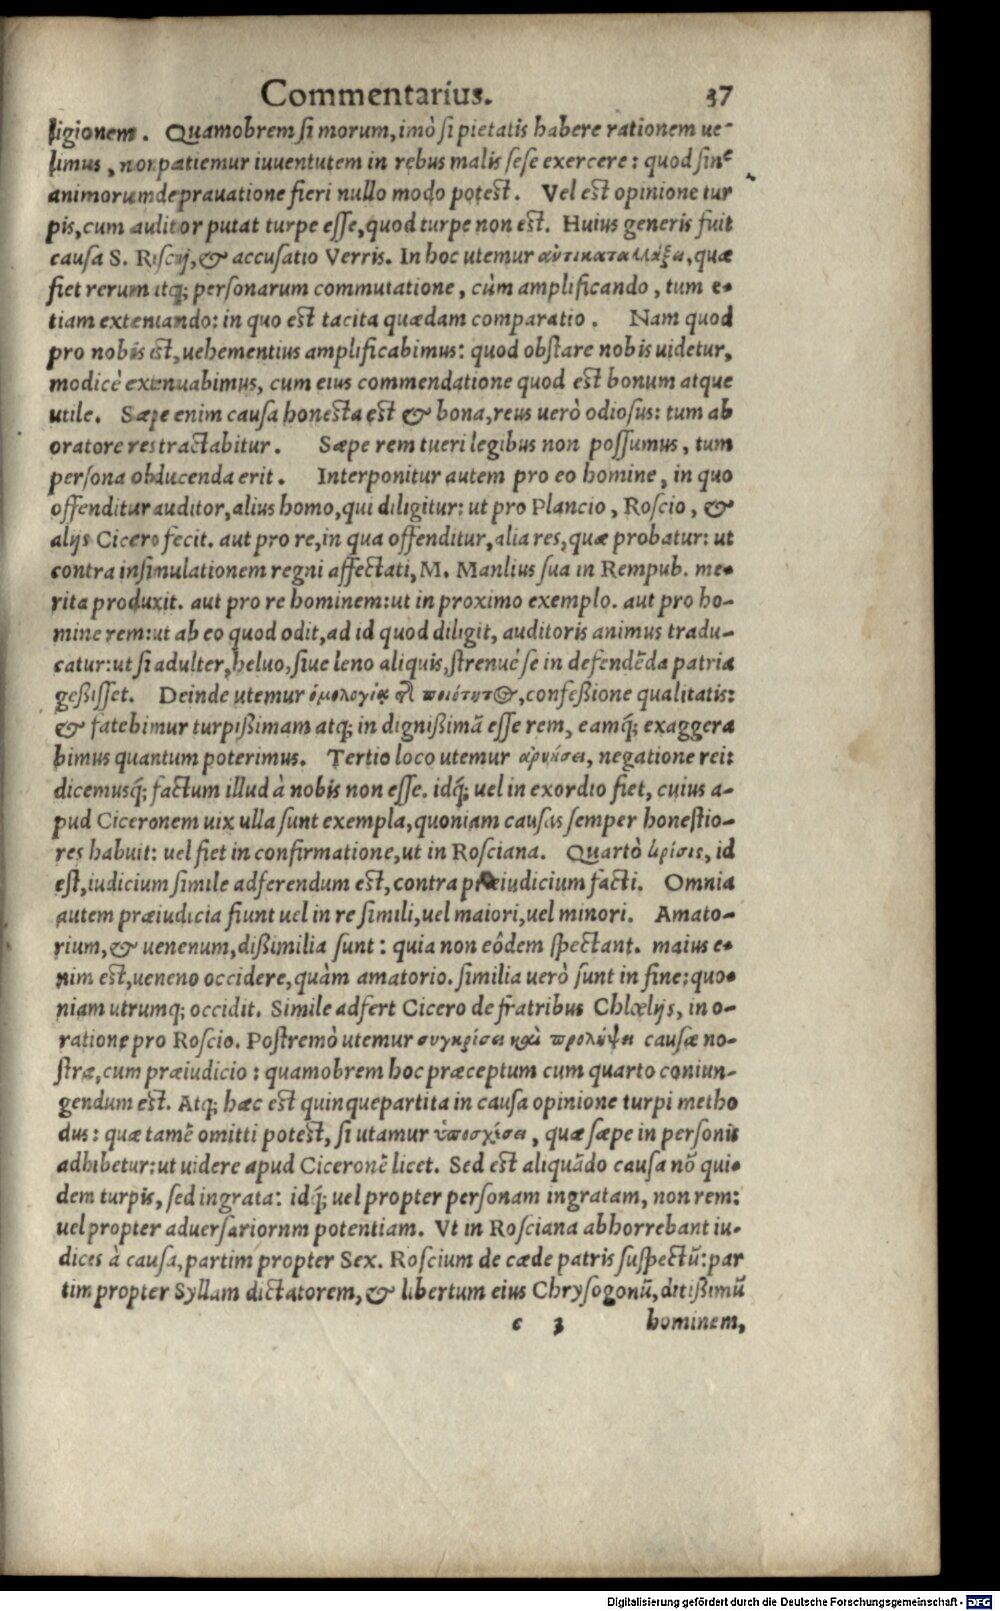 Commentarius. 37
ligionem. Quamobrem si morum, imò si pietatis habere rationem ue-
limus, non patiemur iuuentutem in rebus malis sese exercere: quod sine
animorum deprauatione fieri nullo modo potest. Vel est opinione tur
pis, cum auditor putat turpe esse, quod turpe non est. Huius generis fuit
causa S. Roscij, & accusatio Verris. In hoc utemur ἀντικαταλλάξει, quæ
fiet rerum atq; personarum commutatione, cùm amplificando, tum e-
tiam extenuando: in quo est tacita quædam comparatio. Nam quod
pro nobis est, uehementius amplificabimus: quod obstare nobis uidetur,
modicè extenuabimus, cum eius commendatione quod est bonum atque
utile. Sæpe enim causa honesta est & bona, reus uerò odiosus: tum ab
oratore res tractabitur. Sæpe rem tueri legibus non possumus, tum
persona obducenda erit. Interponitur autem pro eo homine, in quo
offenditur auditor, alius homo, qui diligitur: ut pro Plancio, Roscio, &
alijs Cicero fecit. aut pro re, in qua offenditur, alia res, quæ probatur: ut
contra insimulationem regni affectati, M. Manlius sua in Rempub. me-
rita produxit. aut pro re hominem: ut in proximo exemplo. aut pro ho-
mine rem: ut ab eo quod odit, ad id quod diligit, auditoris animus tradu-
catur: ut si adulter, heluo, siue leno aliquis, strenuè se in defendēda patria
geßisset. Deinde utemur ὁμολογίᾳ τῆ ποιότητος, confeßione qualitatis:
& fatebimur turpißimam atq; in dignißimā esse rem, eamq́; exaggera
bimus quantum poterimus. Tertio loco utemur ἀρνήσει, negatione rei:
dicemusq́; factum illud à nobis non esse. idq́; uel in exordio fiet, cuius a-
pud Ciceronem uix ulla sunt exempla, quoniam causas semper honestio-
res habuit: uel fiet in confirmatione, ut in Rosciana. Quartò κρίσις, id
est, iudicium simile adferendum est, contra præiudicium facti. Omnia
autem præiudicia fiunt uel in re simili, uel maiori, uel minori. Amato-
rium, & uenenum, dißimilia sunt: quia non eôdem spectant. maius e-
nim est, ueneno occidere, quàm amatorio. similia uerò sunt in fine: quo-
niam utrumq; occidit. Simile adfert Cicero de fratribus Chlœlijs, in o-
ratione pro Roscio. Postremò utemur συγκρίσει καὶ προλήψει causæ no-
stræ, cum præiudicio: quamobrem hoc præceptum cum quarto coniun-
gendum est. Atq; hæc est quinquepartita in causa opinione turpi metho
dus: quæ tamē omitti potest, si utamur ὑποσχέσει, quæ sæpe in personis
adhibetur: ut uidere apud Ciceronē licet. Sed est aliquādo causa nō qui-
dem turpis, sed ingrata: idq́; uel propter personam ingratam, non rem:
uel propter aduersariornm potentiam. Vt in Rosciana abhorrebant iu-
dices à causa, partim propter Sex. Roscium de cæde patris suspectū: par
tim propter Syllam dictatorem, & libertum eius Chrysogonū, ditißimū
c 3 hominem,
Digitalisierung gefördert durch die Deutsche Forschungsgemeinschaft - DFG